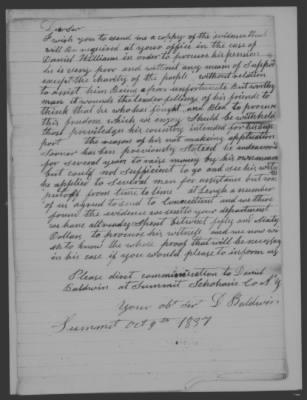 Dear Sir
I wish you to send me a coppy of the evidence that
will be required at your office in the case of
Daniel Williams in order to procure his pension
he is very poor and without any means of support
except the charity of the people without relation
to assist him being a poor unfortunate but worthy
man it wounds the tender feelings of his friends to
think that he who has fought and Bled to procure
this freedom which we enjoy Should be withheld
those priviledges his country intended for his sup
port The reason of his not making application
Sooner has been previously stated he endeavored
for several years to raise money by his
but could not Sufficient to go and see his
he applied to Several men for assistance but
put off from time to time at Length a number
of us agreed to send to Connecticut and we there
found the evidence we sent to your department
we have allready spent between fifty and Sixty
Dollars to procure his witness and we now wi
sh to know the whole proof that will be necessary
in his case if you would please to inform us
Please direct communication to Daniel
Baldwin at Summit Schoharie Co N Y
Your obt Ser D Baldwin
Summit Oct 9th 1837